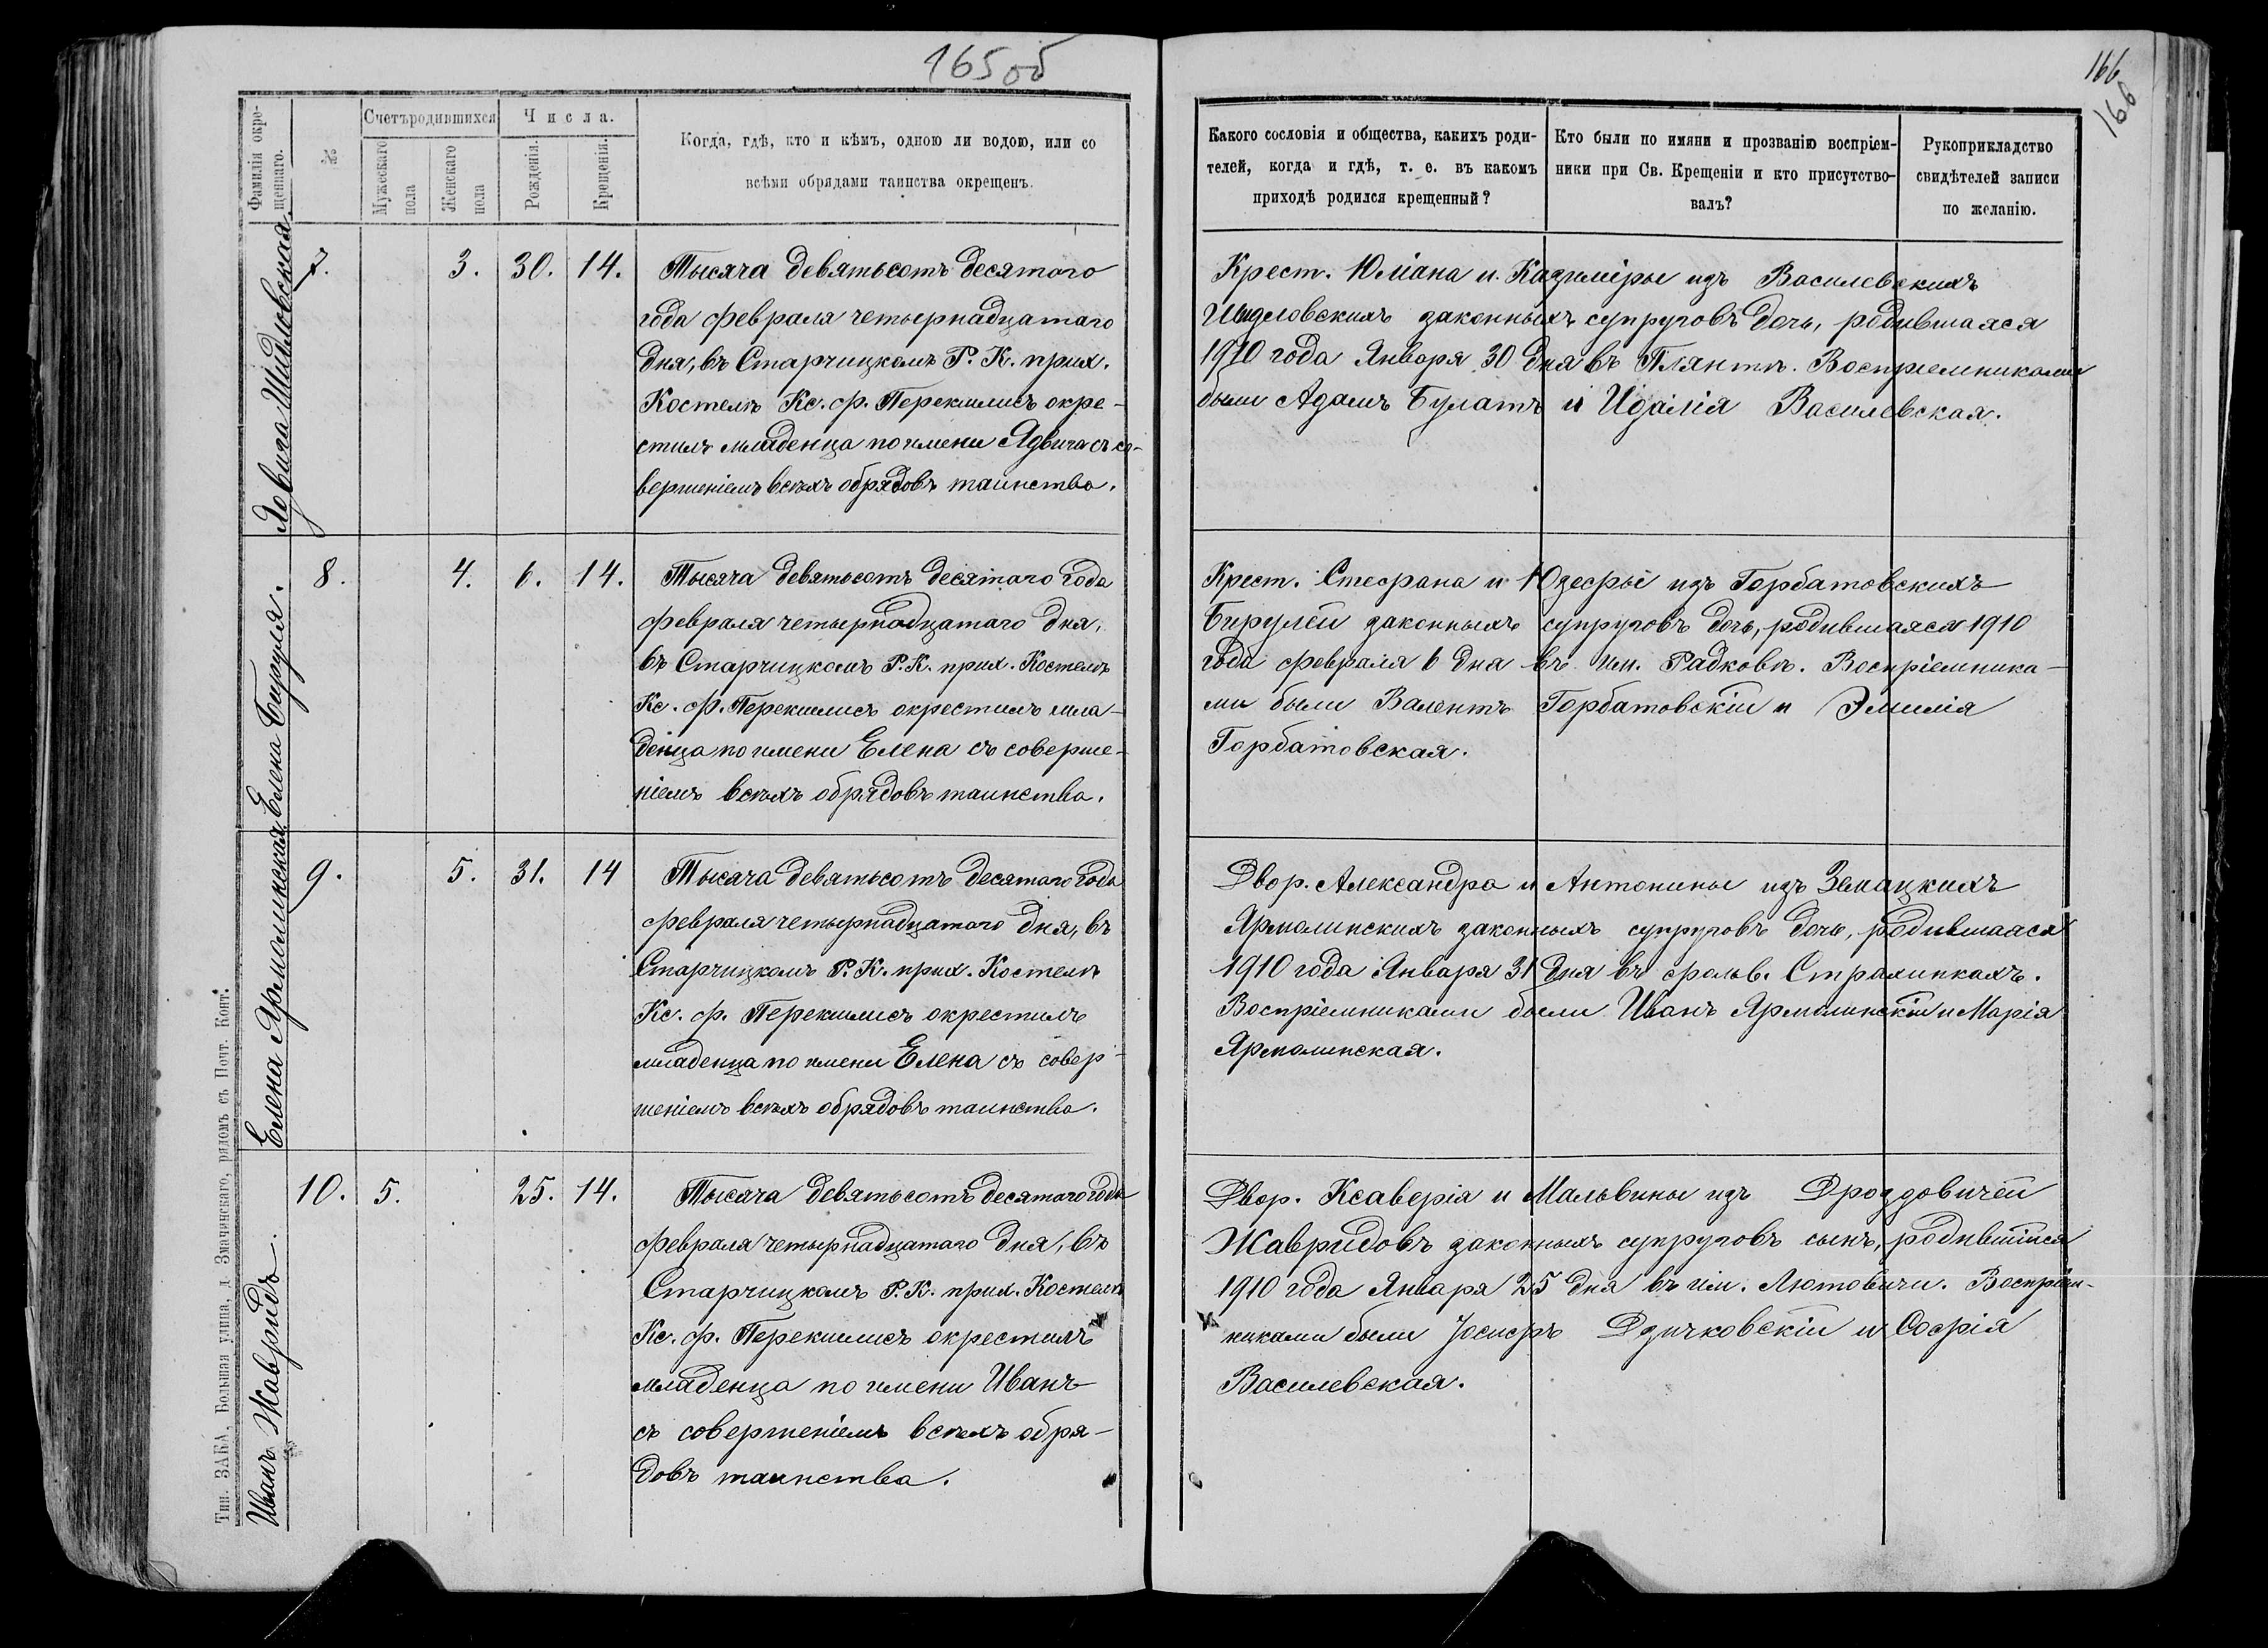 165об
Фамилія окре-
щеннаго.
№
Счетъ родившихся
Мужескаго
пола
Женскаго
пола
Числа.
Рожденія.
Крещенія.
Когда, гдѣ, кто и кѣмъ, одною ли водою, или со
всѣми обрядами таинства окрещенъ.
Ядвига Шидловская.
7.
3.
30.
14.
Тысяча девятьсотъ десятого
года февраля четырнадцатаго
дня, въ Старчицкомъ Р. К. прих.
Костелѣ Кс. ф. Перекшлисъ окре-
стилъ младенца по имени Ядвига съ со-
вершеніемъ всѣхъ обрядовъ таинства.
Елена Бируля.
8.
4.
6.
14.
Тысяча девятьсотъ десятаго года
февраля четырнадцатаго дня,
въ Старчицкомъ Р. К. прих. Костелѣ
Кс. ф. Перекшлисъ окрестилъ мла-
денца по имени Елена съ соверше-
ніемъ всѣхъ обрядовъ таинства.
Елена Ярмолинская.
9.
5.
31.
14
Тысяча девятьсотъ десятаго года
февраля четырнадцатаго дня, въ
Старчицкомъ Р. К. прих. Костелѣ
Кс. ф. Перекшлисъ окрестилъ
младенца по имени Елена съ совер-
шеніемъ всѣхъ обрядовъ таинства.
Иванъ Жавридъ.
10.
5.
25.
14.
Тысяча девятьсотъ десятаго года
февраля четырнадцатаго дня, въ
Старчицкомъ Р. К. прих. Костелѣ
Кс. ф. Перекшлисъ окрестилъ
младенца по имени Иванъ
съ совершеніемъ всѣхъ обря-
довъ таинства.
Тип. ЗАБА, Большая улица, д. Значинскаго, рядомъ съ Почт. Конт.
166
166
Какого сословія и общества, какихъ роди-
телей, когда и гдѣ, т. е. въ какомъ
приходѣ родился крещенный?
Кто были по имяни и прозванію воспріем-
ники при Св. Крещеніи и кто присутство-
валъ?
Рукоприкладство
свидѣтелей записи
по желанію.
Крест. Юліана и Казиміры изъ Василевскихъ
Шидловскихъ законныхъ супруговъ дочь, родившаяся
1910 года Января 30 дня въ Плянтѣ. Воспріемниками
были Адамъ Булатъ и Идалія Василевская.
Крест. Стефана и Юзефы изъ Горбатовскихъ
Бирулей законныхъ супруговъ дочь, родившаяся 1910
года февраля 6 дня въ им. Радковѣ. Воспріемника-
ми были Валентъ Горбатовскій и Эмилія
Горбатовская.
Двор. Александра и Антонины изъ Земацкихъ
Ярмолинскихъ законныхъ супруговъ дочь, родившаяся
1910 года Января 31 дня въ фольв. Страхинкахъ.
Воспріемниками были Иванъ Ярмолинскій и Марія
Ярмолинская.
Двор. Ксаверія и Мальвины изъ Дроздовичей
Жавридовъ законныхъ супруговъ сынъ, родившійся
1910 года Января 25 дня въ им. Лютовичи. Воспріем-
никами были Іосифъ Дзичковскій и Софія
Василевская.